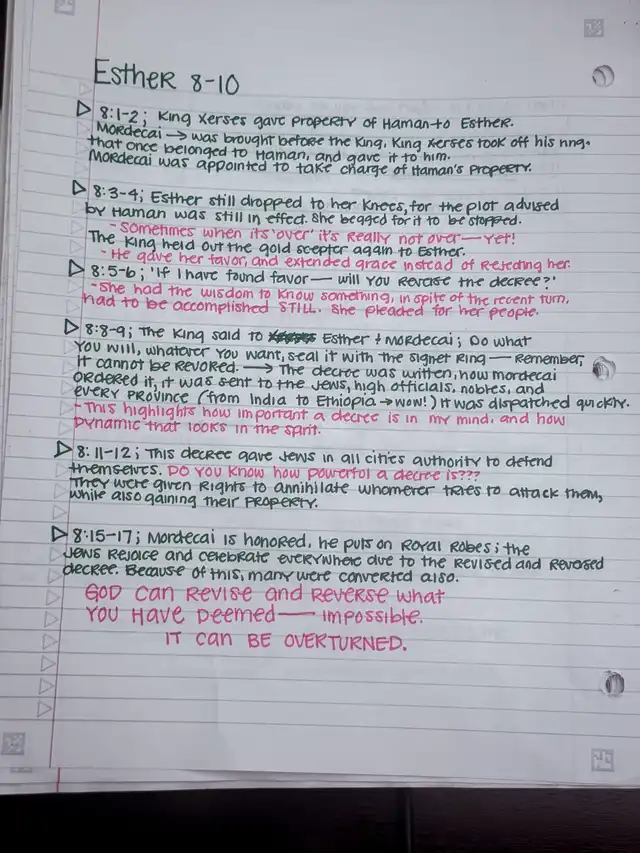 Esther 8-10
8:1-2; King Xerses gave property of Haman to Esther.
Mordecai → was brought before the King, King Xerses took off his ring.
that once belonged to Haman, and gave it to him.
Mordecai was appointed to take charge of Haman's Property.
8:3-4; Esther still dropped to her knees, for the plot advised
by Haman was still in effect. She begged for it to be stopped.
- Sometimes when its 'over' it's really not over — Yet!
The King held out the gold scepter again to Esther.
- He gave her favor, and extended grace instead of rejecting her.
8:5-6; 'If I have found favor — will you reverse the decree?'
- She had the wisdom to know something, in spite of the recent turn,
had to be accomplished STILL. She pleaded for her people.
8:8-9; The King said to Esther + Mordecai; Do what
you will, whatever you want, seal it with the signet ring — Remember,
it cannot be revoked. → The decree was written, how Mordecai
ordered it, it was sent to the Jews, high officials, nobles, and
every province (from India to Ethiopia → wow!) It was dispatched quickly.
- This highlights how important a decree is in my mind, and how
dynamic that looks in the spirit.
8:11-12; This decree gave Jews in all cities authority to defend
themselves. Do you know how powerful a decree is???
They were given rights to annihilate whomever tries to attack them,
while also gaining their property.
8:15-17; Mordecai is honored, he puts on royal robes; the
Jews rejoice and celebrate everywhere due to the revised and reversed
decree. Because of this, many were converted also.
GOD can revise and reverse what
you have deemed — impossible.
IT can BE OVERTURNED.